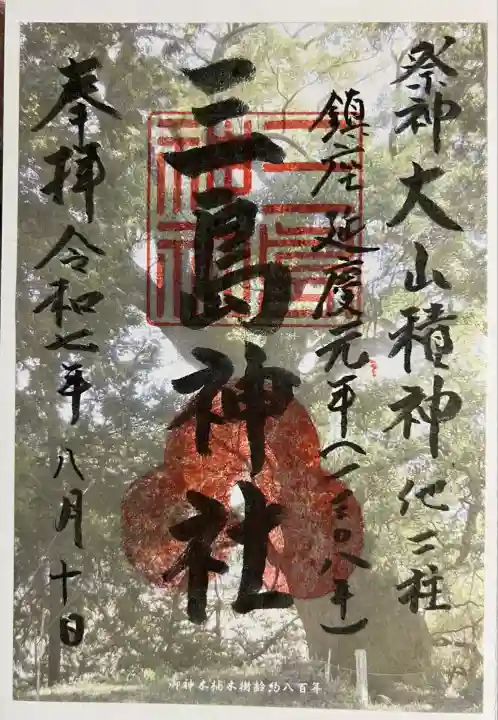 祭神 大山積神 他二柱
鎮座 延慶元年(一三〇八年)
三島神社
奉拝 令和七年 八月十日
御神木楠木樹齢約八百年